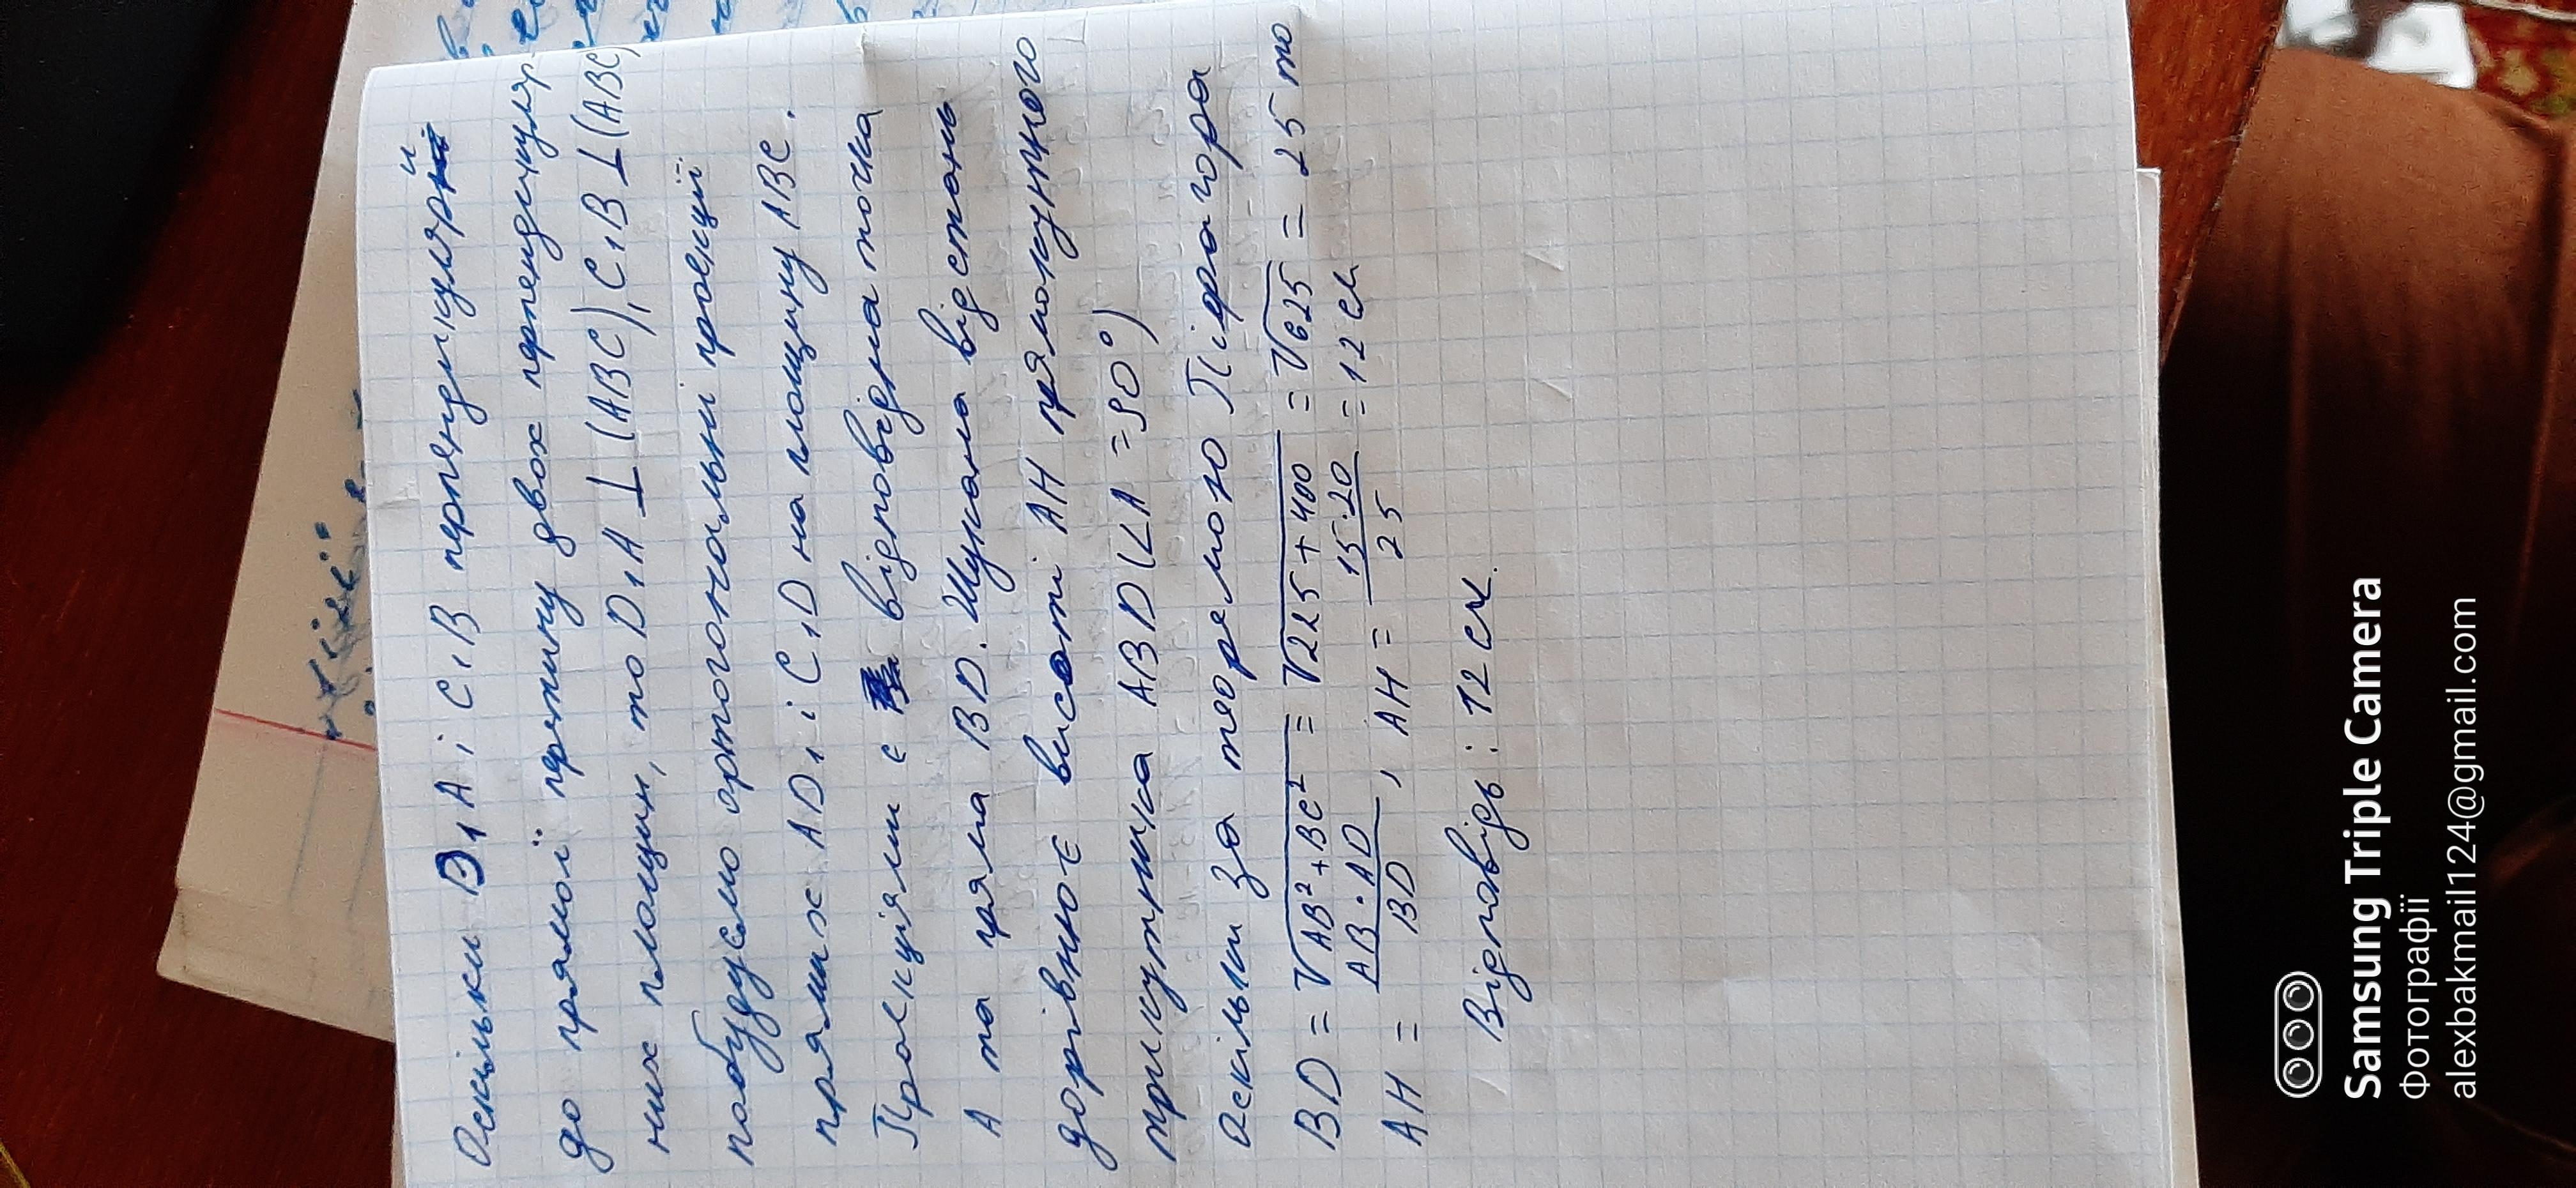 Оскільки D₁A і C₁B перпендикуляри
до прямої перетину двох перпендикуляр
них площин, то D₁A ⊥ (ABC), C₁B ⊥ (ABC)
побудуємо ортогональні проекції
прямих AD₁ і C₁D на площину ABC.
Проекціями є відповідна точка
A та пряма BD. Шукана відстань
дорівнює висоті AH прямокутного
трикутника ABD (∠A = 90°)
Оскільки за теоремою Піфагора
BD = √AB² + BC² = √225 + 400 = √625 = 25 то
AH = AB · AD / BD , AH = 15 · 20 / 25 = 12 см
Відповідь: 12 см.
Samsung Triple Camera
Фотографії
alexbakmail124@gmail.com